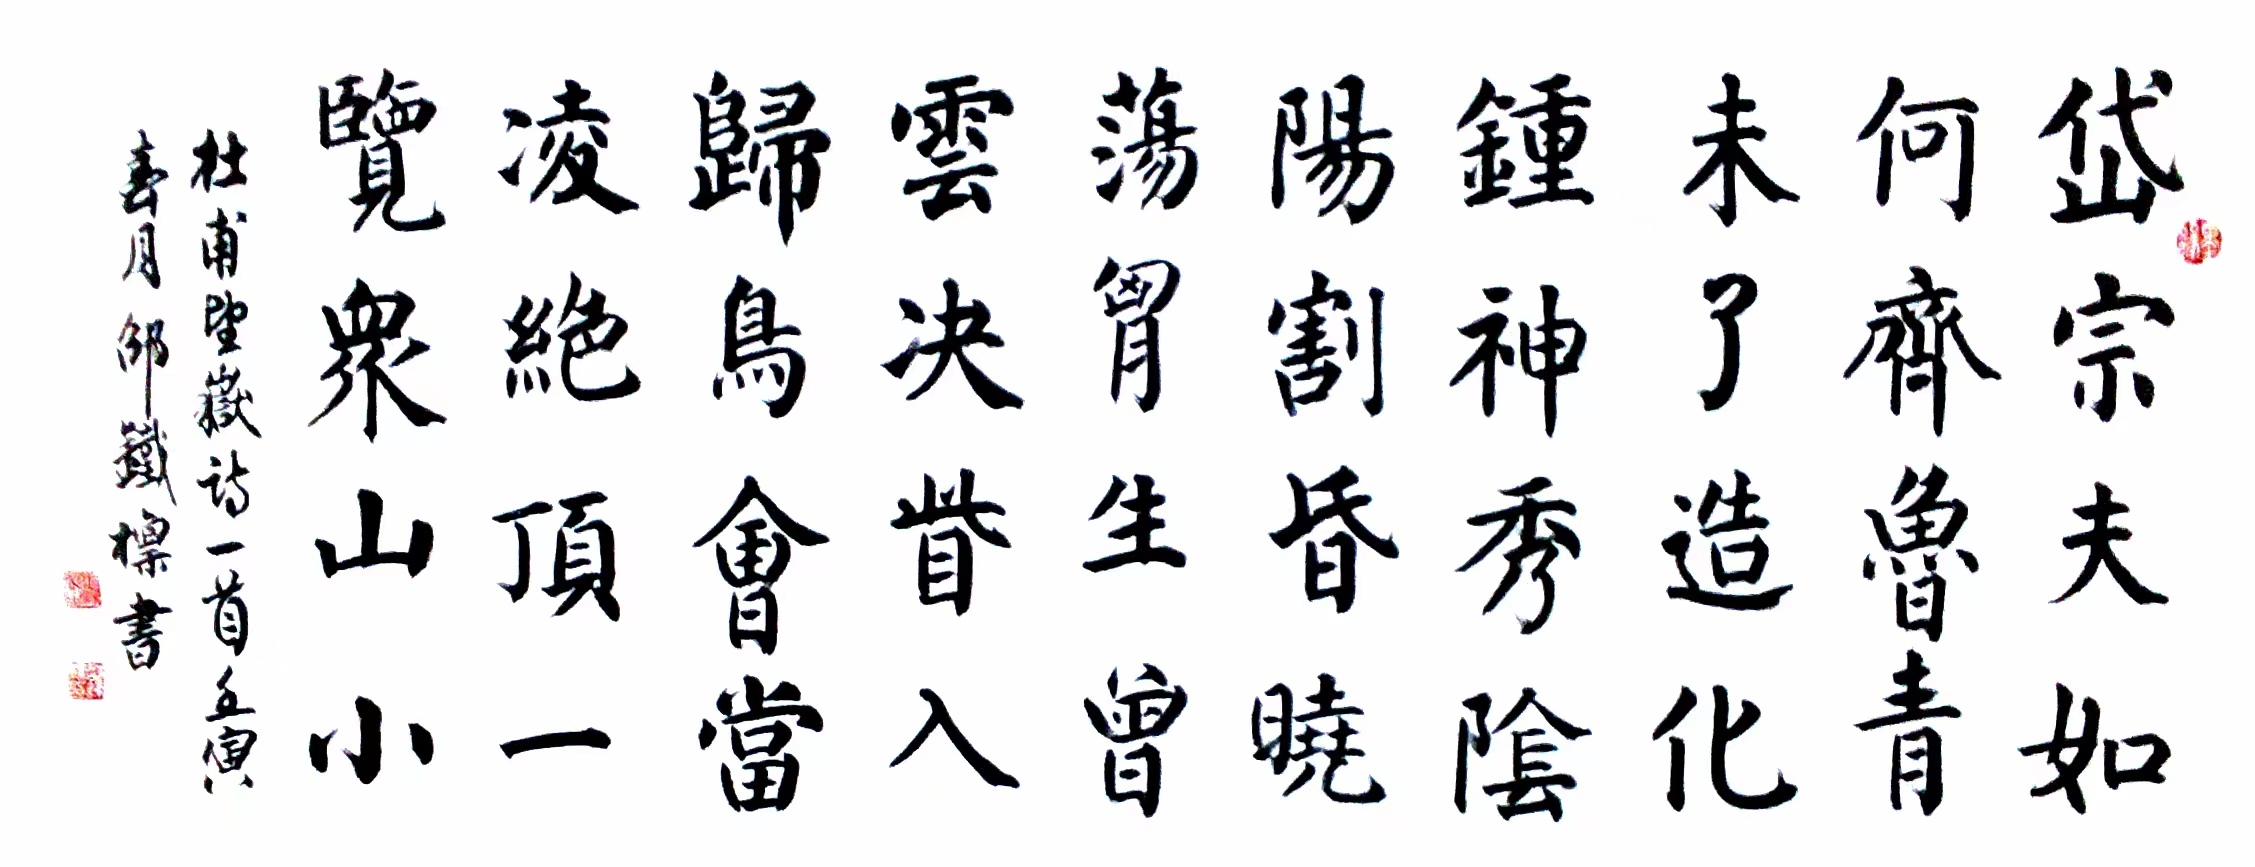 岱宗夫如
何齊魯青
未了造化
鍾神秀陰
陽割昏曉
蕩胷生曾
雲决眥入
歸鳥會當
凌絕頂一
覽衆山小
杜甫望嶽詩一首壬寅
春月邵鐵標書